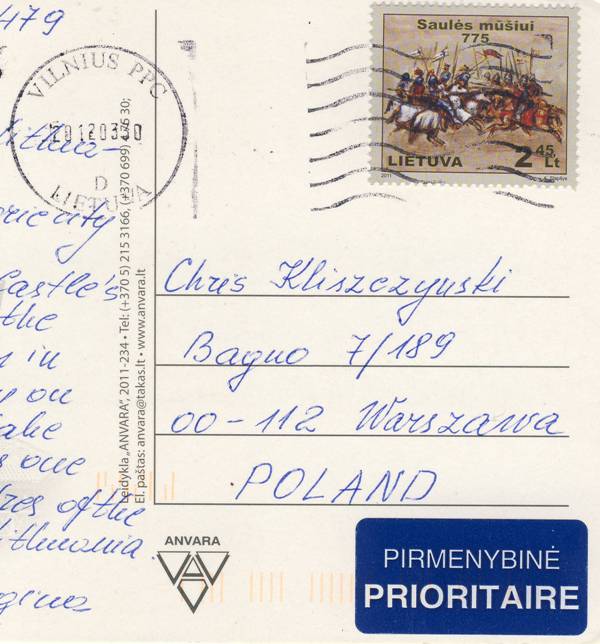 479
VILNIUS PPC
20120330
D
LIETUVA
Saulės mūšiui
775
LIETUVA
2 45 Lt
2011
Lithua-
city
Castle's
the
in
on
take
one
of the
Lithuania.
Leidykla „ANVARA", 2011-234 • Tel: (+370 5) 215 3166, (+370 699) 47630;
El. paštas: anvara@takas.lt • www.anvara.lt
Chris Kliszczynski
Bagno 7/189
00-112 Warszawa
POLAND
ANVARA
PIRMENYBINĖ
PRIORITAIRE